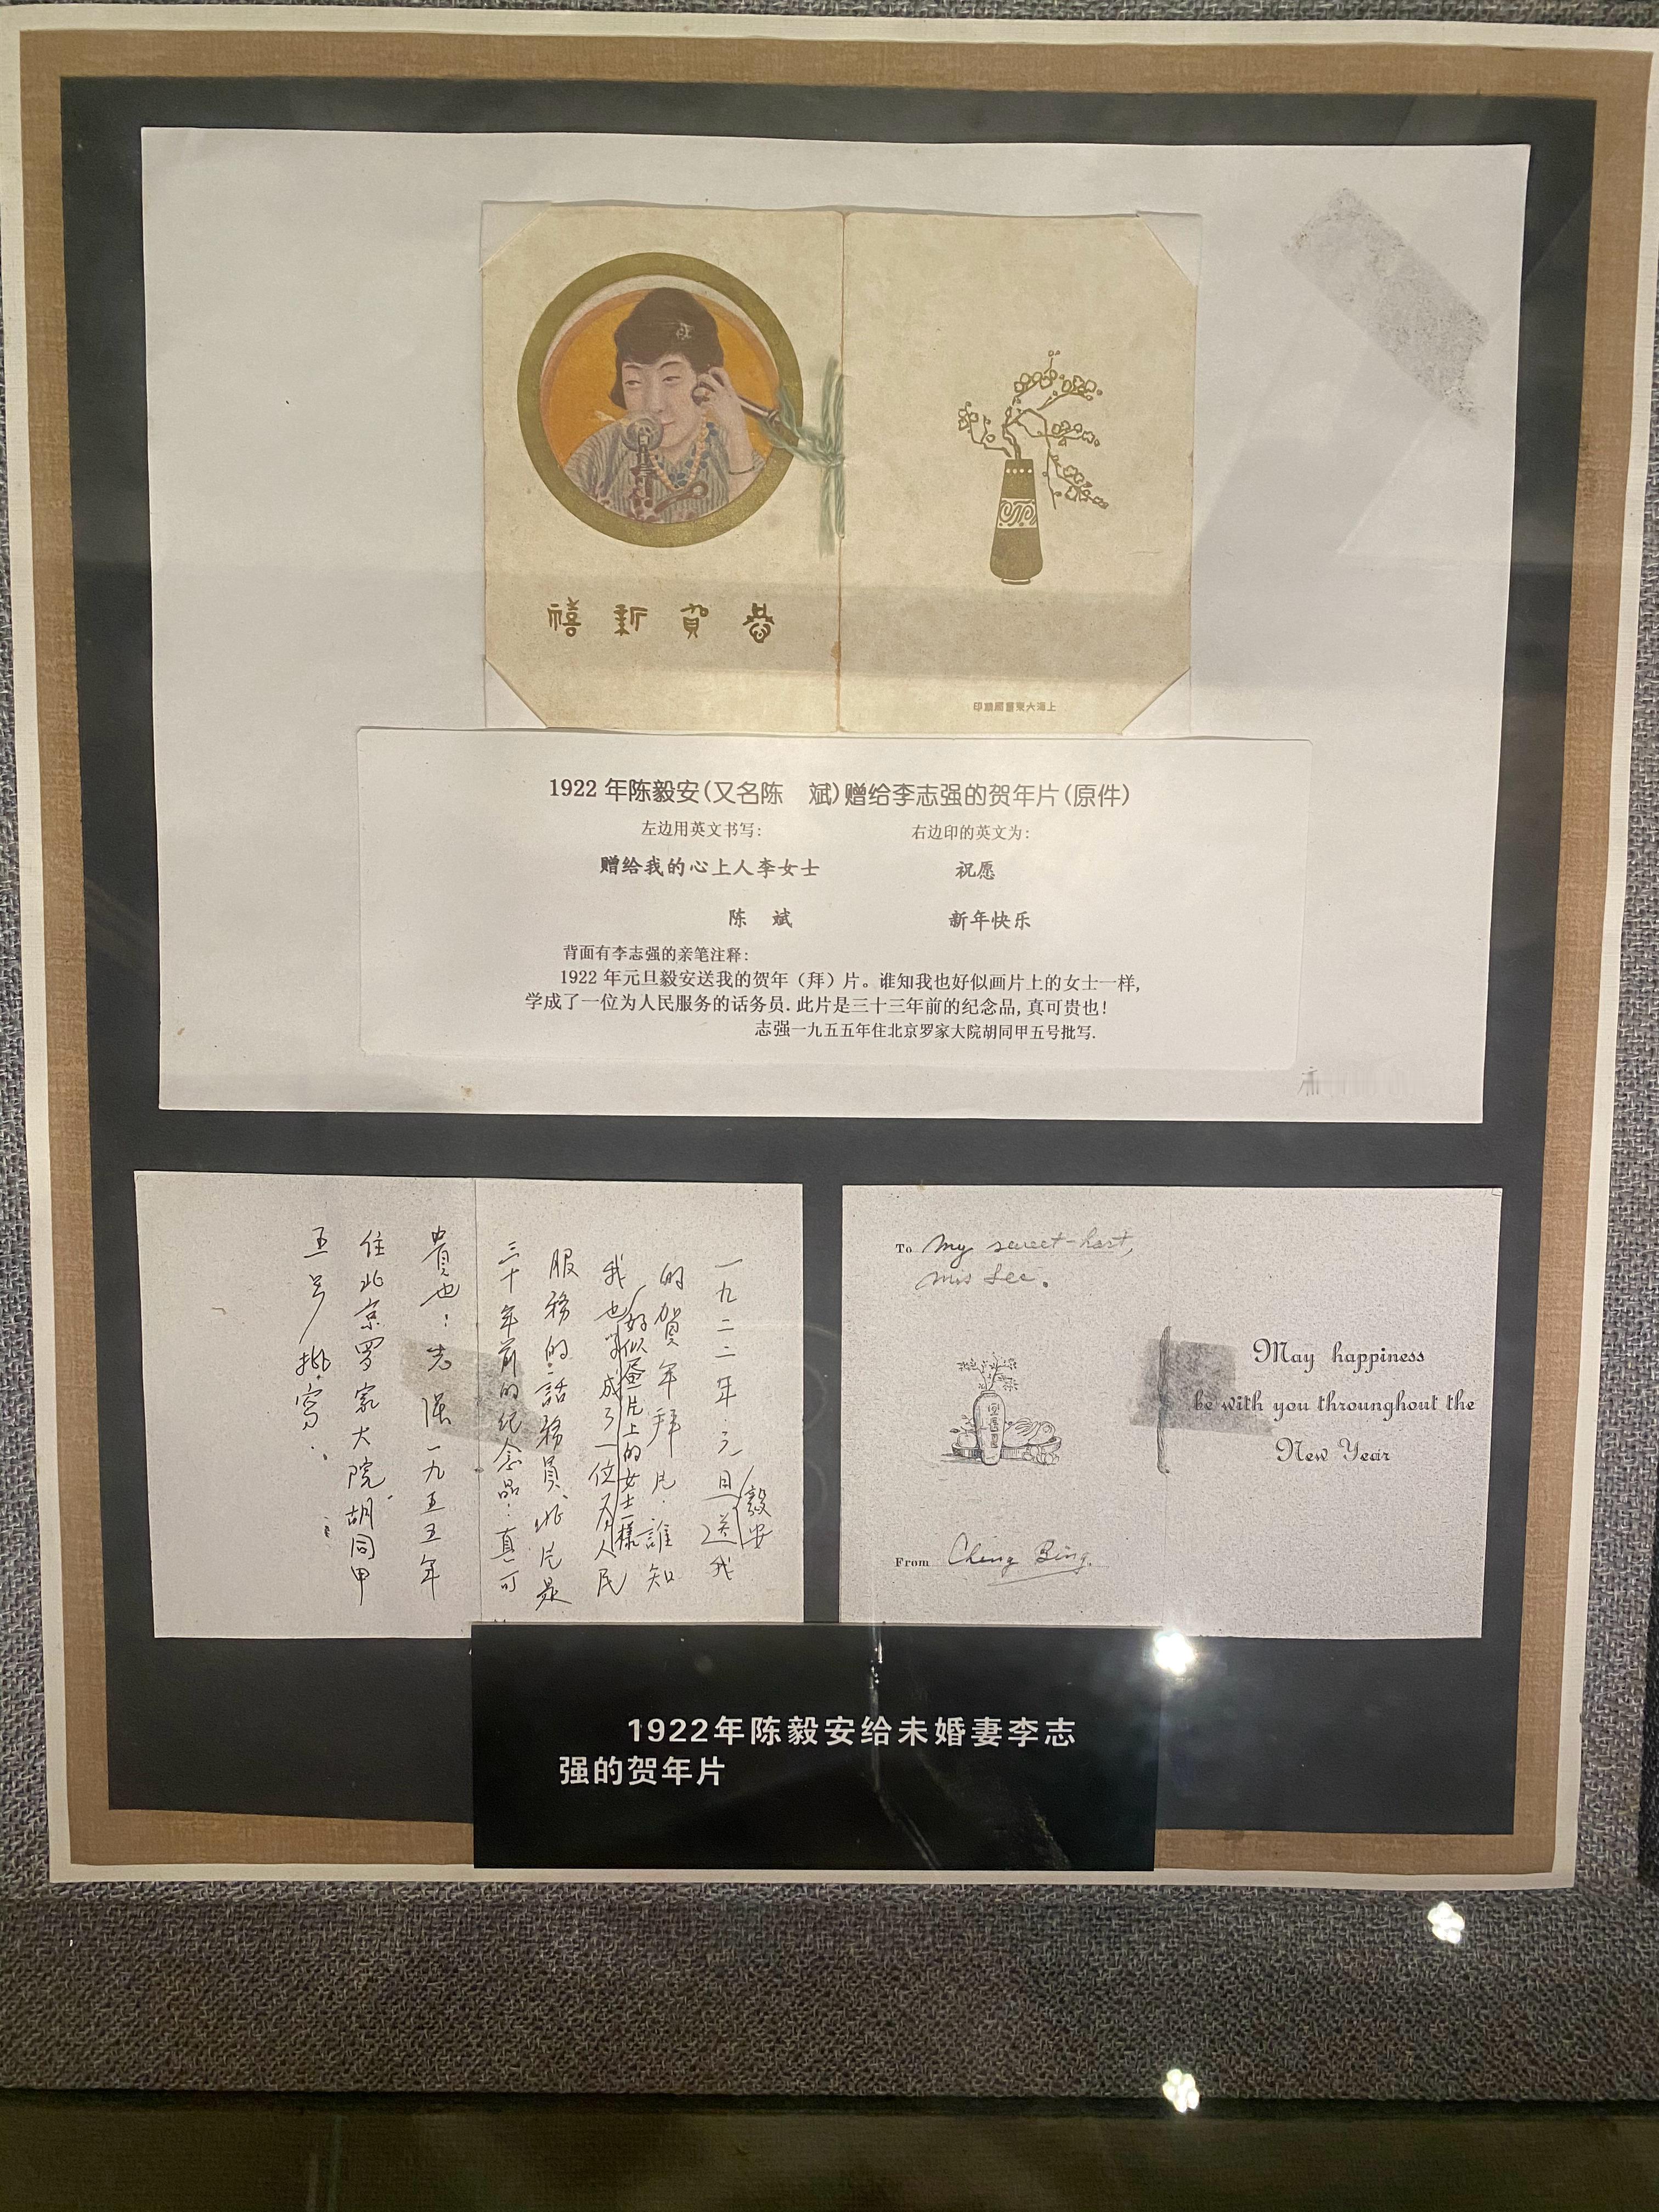 恭賀新禧
上海大東書局印
1922 年陈毅安(又名陈 斌)赠给李志强的贺年片(原件)
左边用英文书写:
右边印的英文为:
赠给我的心上人李女士
祝愿
陈 斌
新年快乐
背面有李志强的亲笔注释:
1922 年元旦毅安送我的贺年（拜）片。谁知我也好似画片上的女士一样,
学成了一位为人民服务的话务员.此片是三十三年前的纪念品,真可贵也!
志强一九五五年住北京罗家大院胡同甲五号批写.
一九二二年.元旦毅安送我
的賀年拜片.誰知
我也好似画片上的女士一樣學成了一位为人民
服務的話務員.此片是
三十年前的纪念品.真可
貴也!志强一九五五年
住北京罗家大院胡同甲
五号批写.
To My sweet-hart,
Mis Lee.
From Cheng Bing.
May happiness
be with you throunghout the
New Year
1922年陈毅安给未婚妻李志
强的贺年片